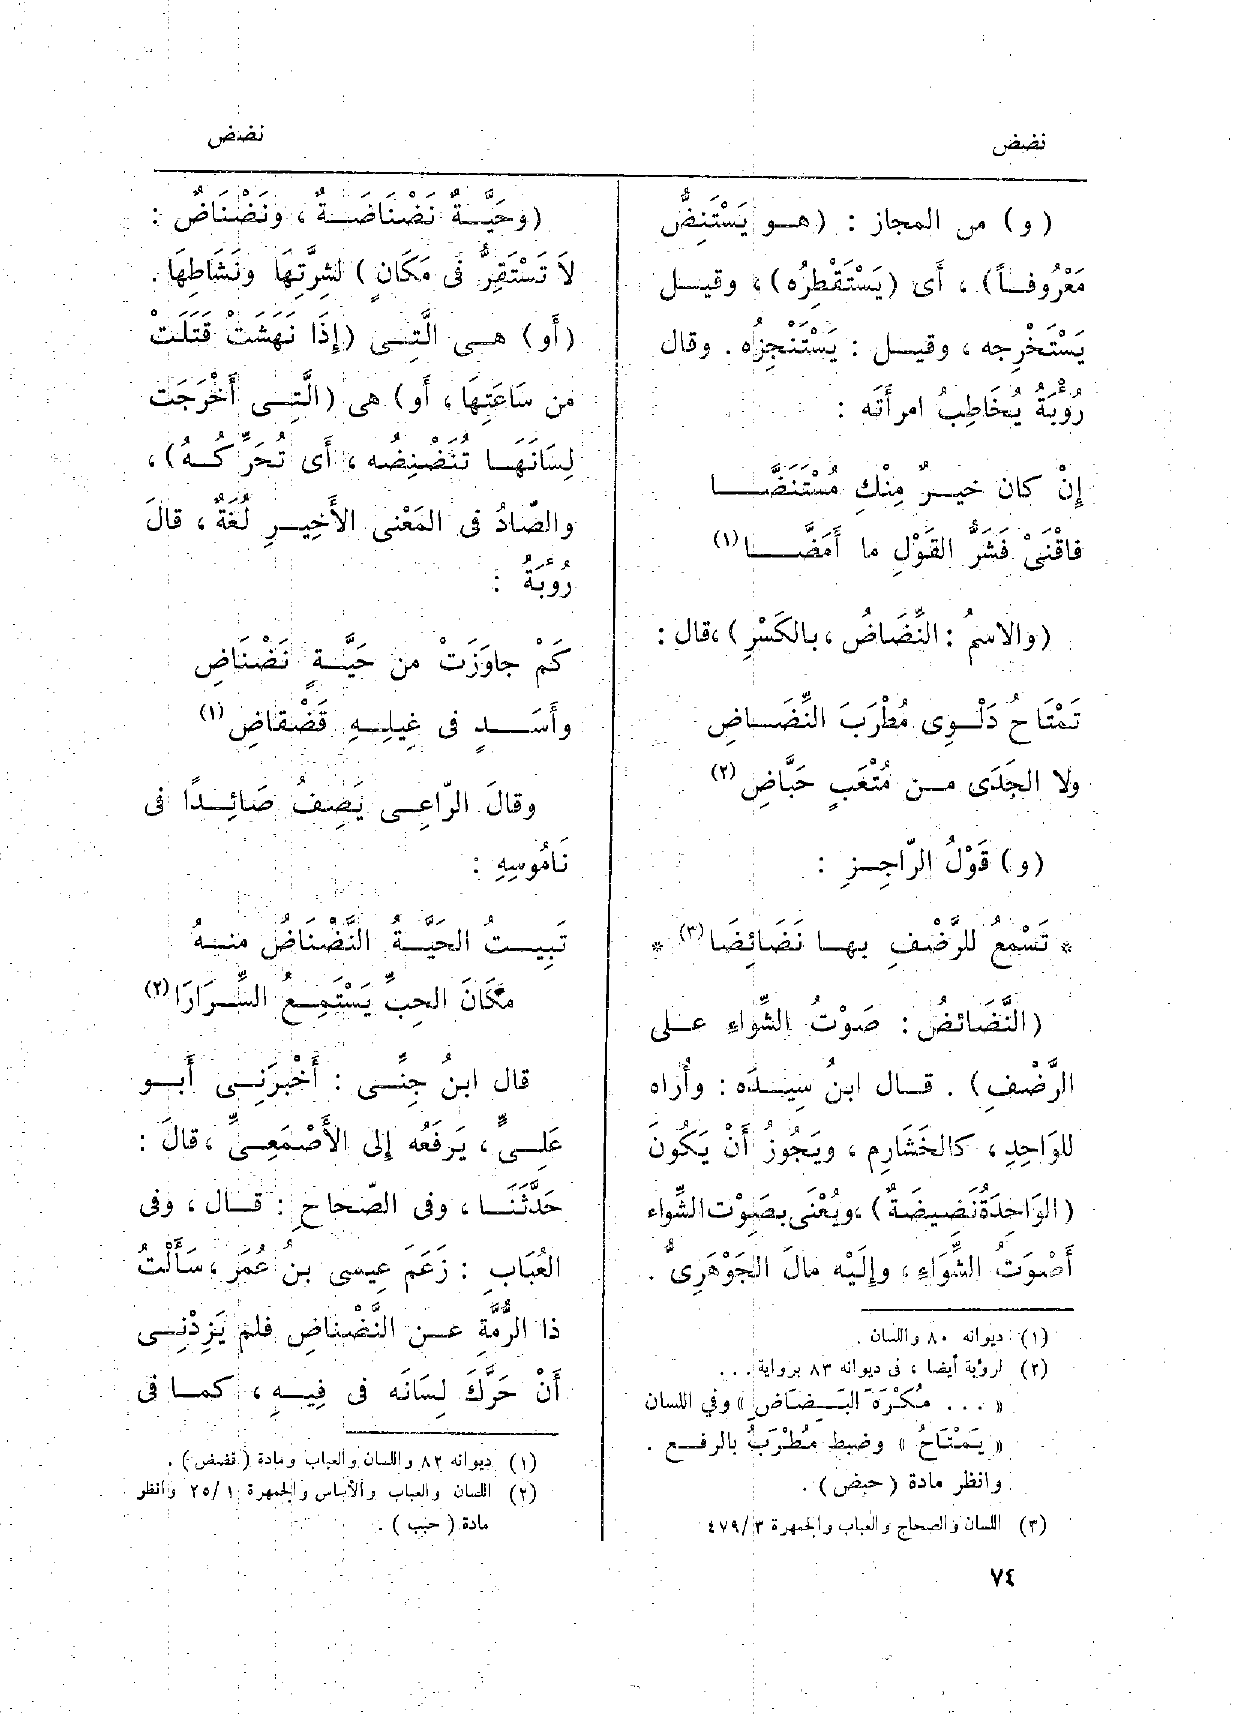 نضض
نضض
(و) من المجاز : (هـو يَسْتَنِضُّ
مَعْرُوفـاً) ، أَى (يَسْتَقْطِرُه) ، وقيـل
يَسْتَخْرِجه ، وقيـل : يَسْتَنْجِزُه . وقال
رُؤْبَةُ يُخَاطِبُ امرأَته :
إِنْ كان خيـرٌ مِنْكِ مُسْتَنَضَّـا
فاقْنَىْ فَشَرُّ القَوْلِ ما أَمَضَّـا (١)
(والاسمُ : النِّضَاضُ ، بالكَسْرِ) ، قال :
تَمْتَاحُ دَلْـوِى مُطْرَبَ النِّضَـاضِ
ولا الجَدَى مـن مُتْعَبٍ حَبَّاضِ (٢)
(و) قَوْلُ الرّاجِـزِ :
* تَسْمَعُ للرَّضْفِ بهـا نَضَائِضَا (٣) *
(النَّضَائضُ : صَوْتُ الشِّوَاءِ عـلى
الرَّضْـفِ) . قـال ابنُ سِيـدَه : وأُراه
للوَاحِدِ ، كالخَشَارِم ، ويَجُوزُ أَنْ يَكُونَ
(الوَاحِدَةُ نَضِيضَةٌ) ، ويُعْنَى بصَوْت الشِّواء
أَصْوَتُ الشِّوَاءِ ، وإِلَيْه مالَ الجَوْهَرِىُّ .
(١) ديوانه ٨٠ واللسان .
(٢) لرؤبة أيضا ، فى ديوانه ٨٣ برواية ...
« ... مُكْرَهَ البَـضَاضِ » وفي اللسان
« يَمْتَاحُ » وضبط مُطْرَبُ بالرفـع .
وانظر مادة ( حبض ) .
(٣) اللسان والصحاح والعباب والجمهرة ٣/ ٤٧٩
(وحَيَّـةٌ نَضْنَاضَـةٌ ، ونَضْنَاضٌ :
لاَ تَسْتَقِرُّ فى مَكَانٍ ) لشِرَّتِهَا ونَشَاطِهَا .
(أَو) هـى الَّتِـى (إِذَا نَهَشَتْ قَتَلَتْ
من سَاعَتِهَا ، أَو) هى (الَّتِـى أَخْرَجَت
لِسَانَهَـا تُنَضْنِضُه ، أَى تُحَرِّكـهُ) ،
والصَّادُ فى المَعْنى الأَخِيـرِ لُغَةٌ ، قالَ
رُوبَةُ :
كَمْ جاوَزَتْ من حَيَّـةٍ نَضْنَاضِ
وأَسَـدٍ فى غِيلِـهِ قَضْقَاضِ (١)
وقالَ الرّاعِـى يَصِفُ صَائِـدًا فى
نَامُوسِهِ :
تَبِيـتُ الحَيَّـةُ النَّضْنَاضُ منـهُ
مَكَانَ الحِبِّ يَسْتَمِـعُ السِّـرَارَا (٢)
قال ابنُ جِنِّـى : أَخْبَرَنِـى أَبـو
عَلِـىٍّ ، يَرفَعُه إِلى الأَصْمَعِـىِّ ، قالَ :
حَدَّثَنَـا ، وفى الصّحاحِ : قـال ، وفى
العُبَابِ : زَعَم عِيسى بنُ عُمَرَ ، سَأَلْتُ
ذا الرمَّةِ عـن النَّضْنَاضِ فلم يَزِدْنِـى
أَنْ حَرَّكَ لِسَانَه فى فِيـهِ ، كمـا فى
(١) ديوانه ٨٢ واللسان والعباب ومادة ( قضض ) .
(٢) اللسان والعباب والأساس والجمهرة ١/ ٢٥ وانظر
مادة ( حبب ) .
٧٤